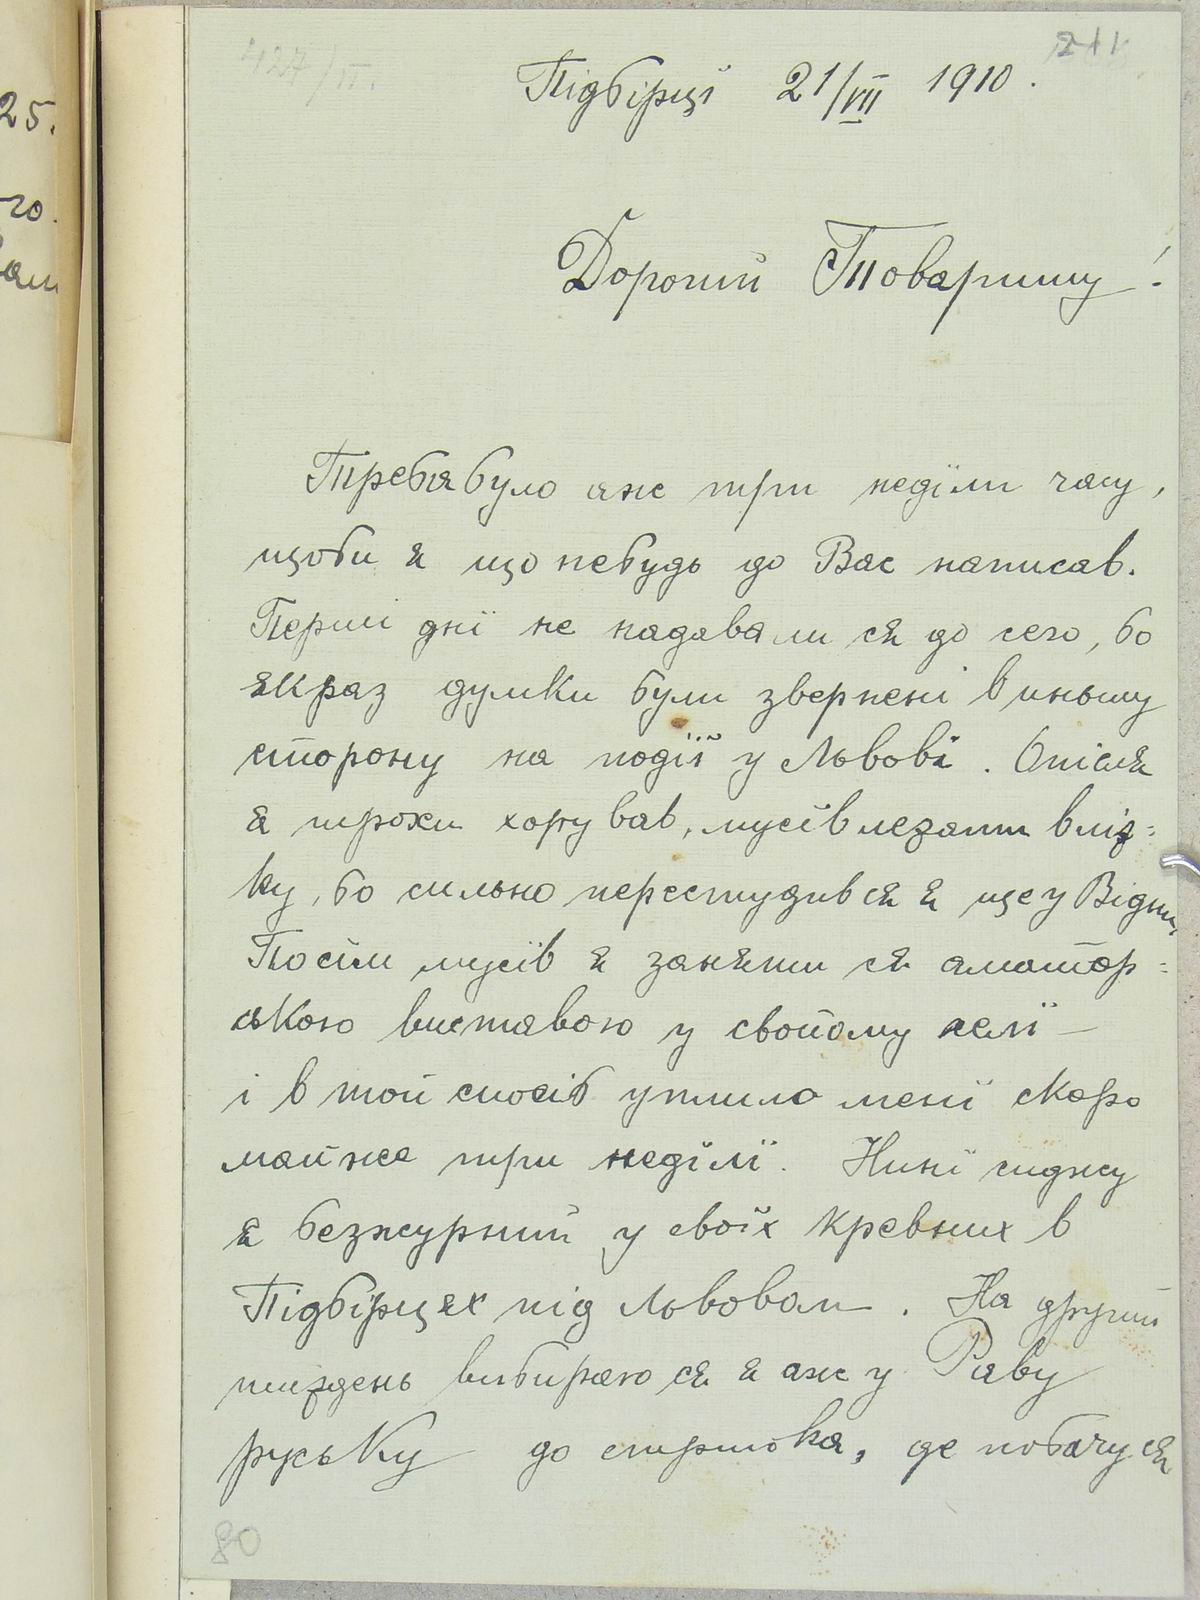 427/II.
211
25.
го.
Підбірці 21/VII 1910.
Дорогий Товаришу!
Треба було аж три неділи часу,
щоби я що небудь до Вас написав.
Перші дні не надавали ся до сего, бо
якраз думки були звернені в иньшу
сторону на події у Львові. Опісля
я трохи хорував, мусів лежати в ліж=
ку, бо сильно перестудив ся я ще у Відни,
Посїм мусїв я заняти ся аматор=
ською виставою у свойому селї
і в той спосіб уплило менї скоро
майже три неділї. Нинї сиджу
я безжурний у своїх кревних в
Підбірцях під Львовом. На другий
тиждень вибираю ся я аж у Раву
руську до стрийка, де побачу ся
80